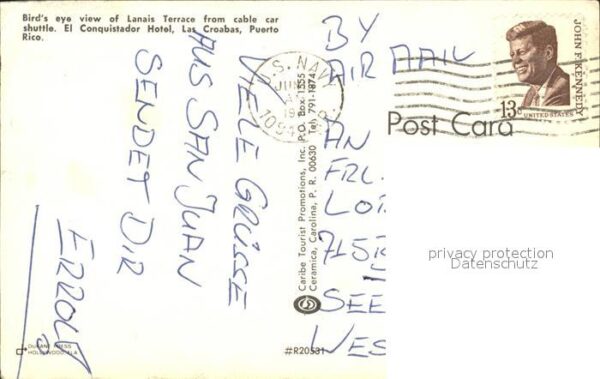 Bird's eye view of Lanais Terrace from cable car
shuttle. El Conquistador Hotel, Las Croabas, Puerto
Rico.
VIELE GRÜSSE
AUS SAN JUAN
SENDET DIR
ERROL
Caribe Tourist Promotions, Inc. P.O. Box 1555
Ceramica, Carolina, P. R. 00630 Tel. 791-1874
DUKANE PRESS
HOLLYWOOD, FLA.
#R20531
U.S. NAVY
JUN
BY
AIR MAIL
AN
FRL.
LOT
715
SEE
WES
JOHN F. KENNEDY
13c
UNITED STATES
Post Card
privacy protection
Datenschutz